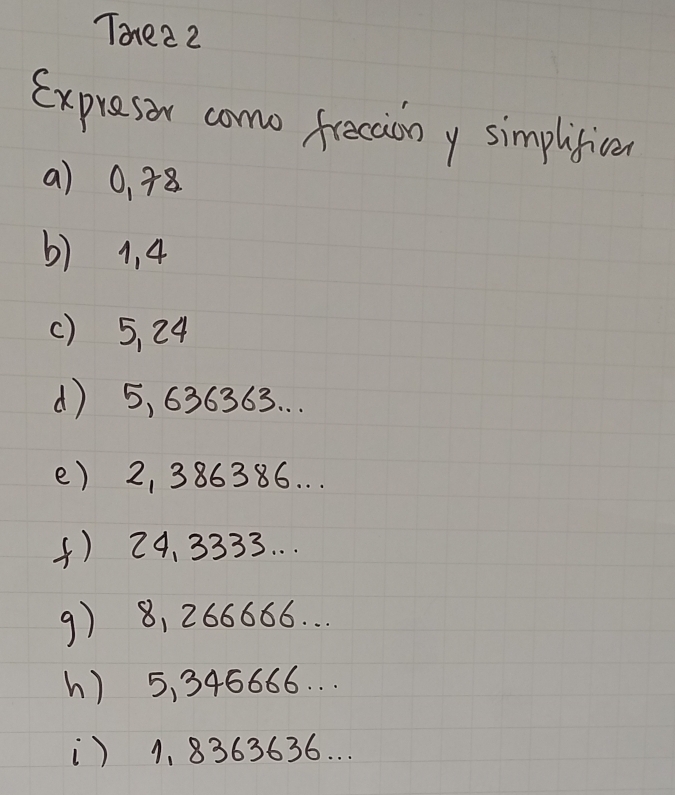 Tarea 2
Expresar como fracción y simplificar
a) 0,78
b) 1,4
c) 5,24
d) 5,636363...
e) 2,386386...
f) 24,3333...
g) 8,266666...
h) 5,346666...
i) 1,8363636...